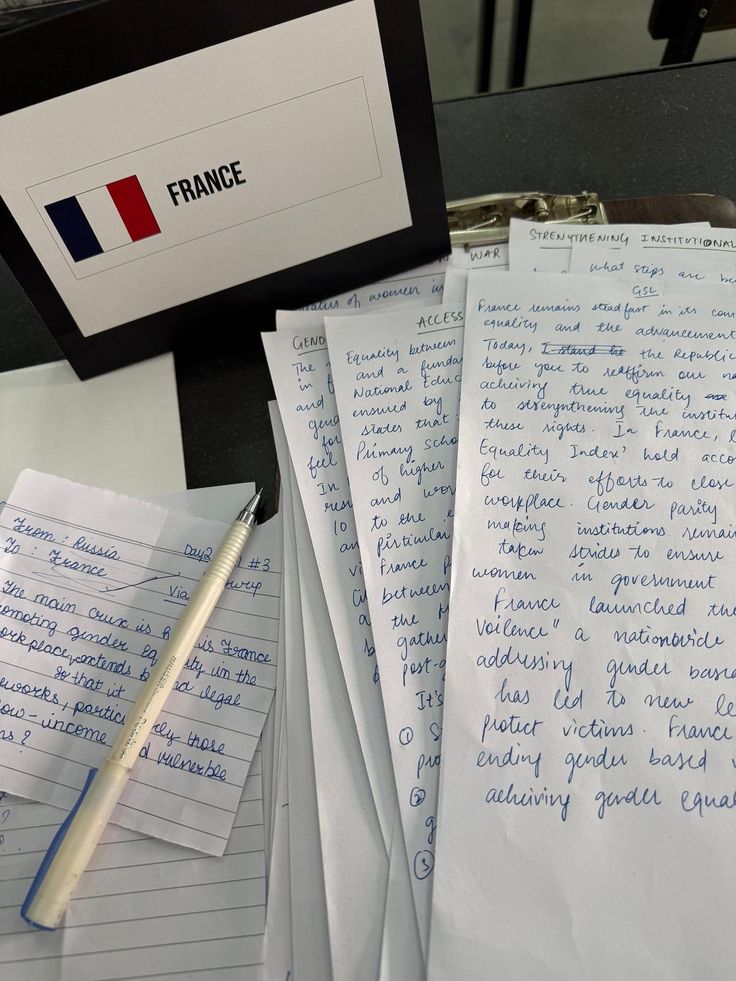 FRANCE
WAR
STRENGTHENING INSTITUTIONAL
what steps are be
status of women in
GSL
France remains steadfast in its com
equality and the advancement
Today, I stand be the Republic
before you to reaffirm our
acheiving true equality
to strengthening the institut
these rights. In France,
Equality Index' hold acco
for their efforts to close
workplace. Gender parity
making institutions remain
taken strides to ensure
women in government
France launched the
voilence" a nationwide
addressing gender base
has led to new le
protect victims. France
ending gender based
acheiving gender equa
ACCESS
Equality between
and a funda
National Educ
ensured by
states that
Primary Scho
of higher
and wor
to the
pirticular
France
between
the
gathe
post-
It's
①
pro
②
g
③
GEND
The
in
and
gend
for
feel
In
res
10
an
From : Russia
To : France
Day2
#3
Via
The main crux is is France
omoting gender Eq ity in the
orkplace, extends b nd legal
so that it
eworks, partic rly those
ow-income d vulnerble
ns ?